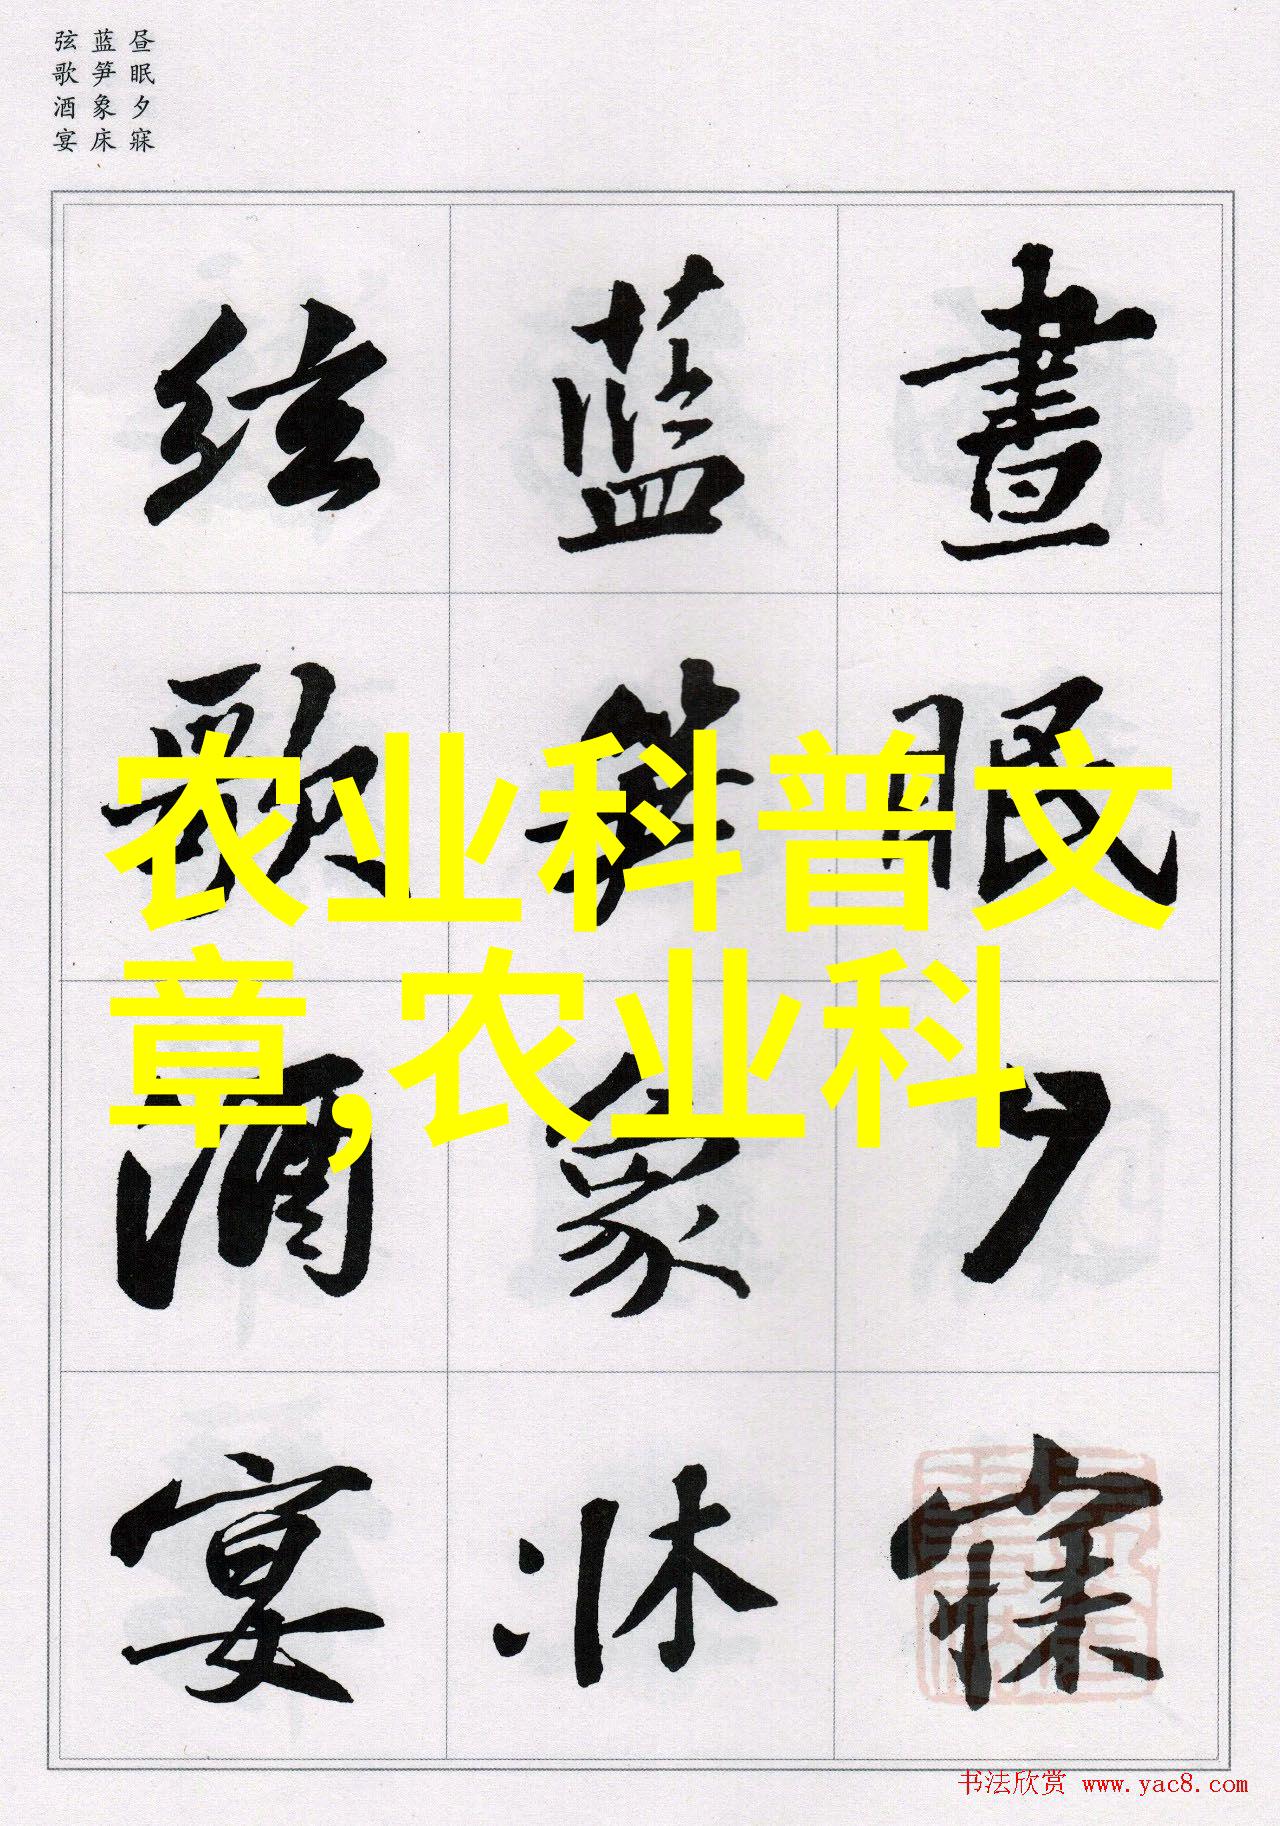 昼眠夕寐
蓝笋象床
弦歌酒宴
晝眠夕寐
蓝笋象床
絃歌酒宴
农业科普文
章,农业科
书法欣赏 www.yac8.com